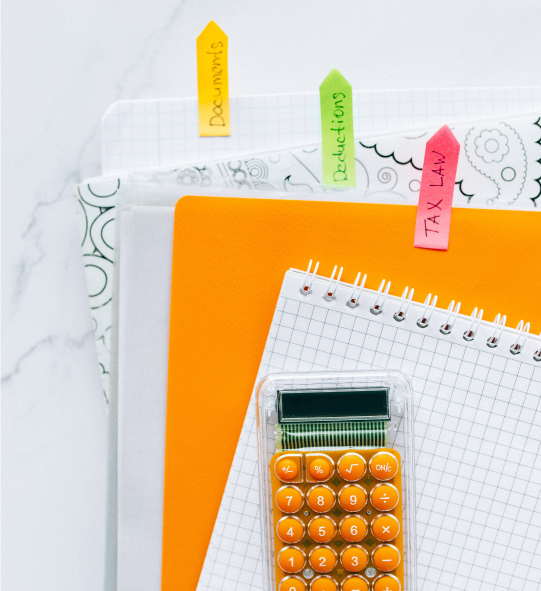 Documents
Deductions
TAX LAW
+/- % √ ON/C
7 8 9 ÷
4 5 6 ×
1 2 3 −